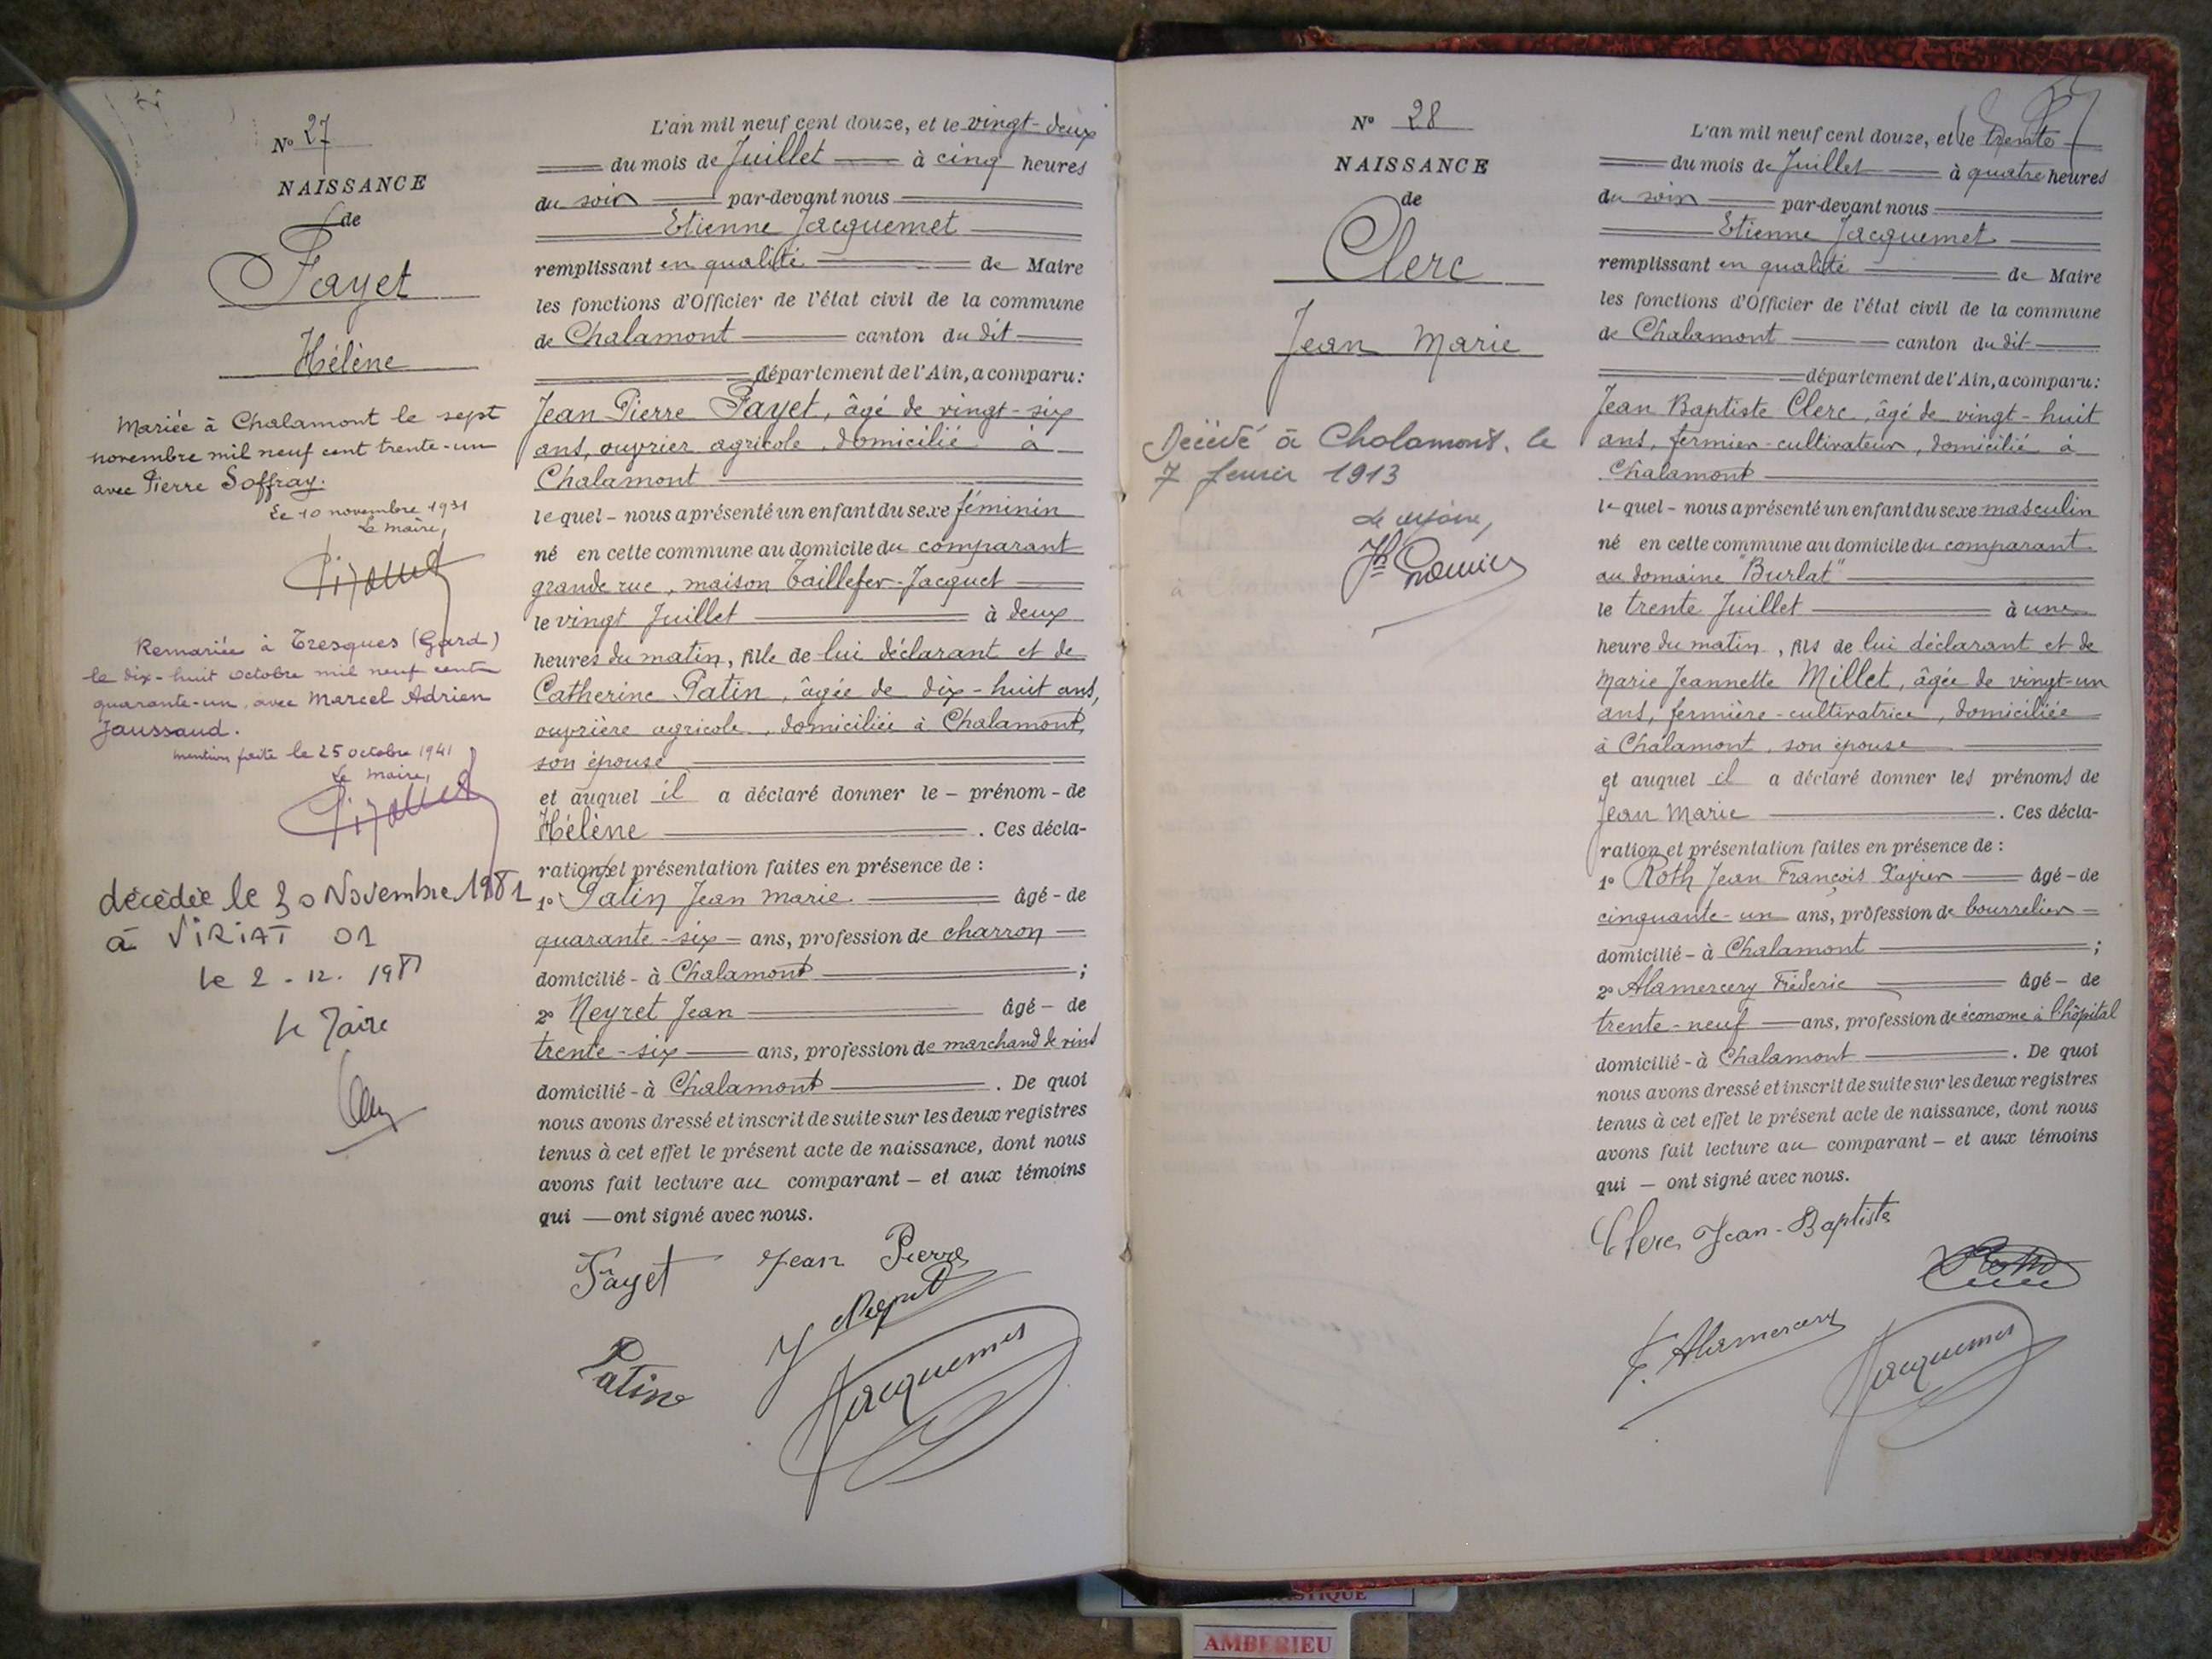 N° 27
NAISSANCE
de
Fayet
Hélène
Mariée à Chalamont le sept
novembre mil neuf cent trente-un
avec Pierre Soffray.
Le 10 novembre 1931
Le maire,
Remariée à Tresques (Gard)
le dix-huit octobre mil neuf cent
quarante-un, avec Marcel Adrien
Jaussaud.
mention faite le 25 octobre 1941
Le maire,
décédée le 30 Novembre 1981
à VIRIAT 01
le 2-12. 1981
Le Maire
L'an mil neuf cent douze, et le vingt-deux
du mois de Juillet à cinq heures
du soir par-devant nous
Etienne Jacquemet
remplissant en qualité de Maire
les fonctions d'Officier de l'état civil de la commune
de Chalamont canton du dit
département de l'Ain, a comparu:
Jean Pierre Fayet, âgé de vingt-six
ans, ouvrier agricole, domicilié à
Chalamont
lequel - nous a présenté un enfant du sexe féminin
né en cette commune au domicile du comparant
grande rue, maison Taillefer-Jacquet
le vingt Juillet à deux
heures du matin, fille de lui déclarant et de
Catherine Patin, âgée de dix-huit ans,
ouvrière agricole, domiciliée à Chalamont,
son épouse
et auquel il a déclaré donner le - prénom - de
Hélène . Ces décla-
rations et présentation faites en présence de :
1° Patin Jean Marie âgé - de
quarante-six ans, profession de charron
domicilié - à Chalamont ;
2° Neyret Jean âgé - de
trente-six ans, profession de marchand de vins
domicilié - à Chalamont . De quoi
nous avons dressé et inscrit de suite sur les deux registres
tenus à cet effet le présent acte de naissance, dont nous
avons fait lecture au comparant - et aux témoins
qui - ont signé avec nous.
Fayet Jean Pierre
J Neyret
Patin
Jacquemet
N° 28
NAISSANCE
de
Clerc
Jean Marie
Décédé à Chalamont, le
7 février 1913
Le Maire,
L'an mil neuf cent douze, et le trente
du mois de Juillet à quatre heures
du soir par-devant nous
Etienne Jacquemet
remplissant en qualité de Maire
les fonctions d'Officier de l'état civil de la commune
de Chalamont canton du dit
département de l'Ain, a comparu:
Jean Baptiste Clerc, âgé de vingt-huit
ans, fermier-cultivateur, domicilié à
Chalamont
lequel - nous a présenté un enfant du sexe masculin
né en cette commune au domicile du comparant
au domaine "Burlat"
le trente Juillet à une
heure du matin, fils de lui déclarant et de
Marie Jeannette Millet, âgée de vingt-un
ans, fermière-cultivatrice, domiciliée
à Chalamont, son épouse
et auquel il a déclaré donner les prénoms de
Jean Marie . Ces décla-
ration et présentation faites en présence de :
1° Roth Jean François Xavier âgé - de
cinquante-un ans, profession de bourrelier
domicilié - à Chalamont ;
2° Alamercery Fréderic âgé - de
trente-neuf ans, profession de économe à l'hôpital
domicilié - à Chalamont . De quoi
nous avons dressé et inscrit de suite sur les deux registres
tenus à cet effet le présent acte de naissance, dont nous
avons fait lecture au comparant - et aux témoins
qui - ont signé avec nous.
Clerc Jean-Baptiste
Roth
F. Alamercery
Jacquemet
AMBERIEU